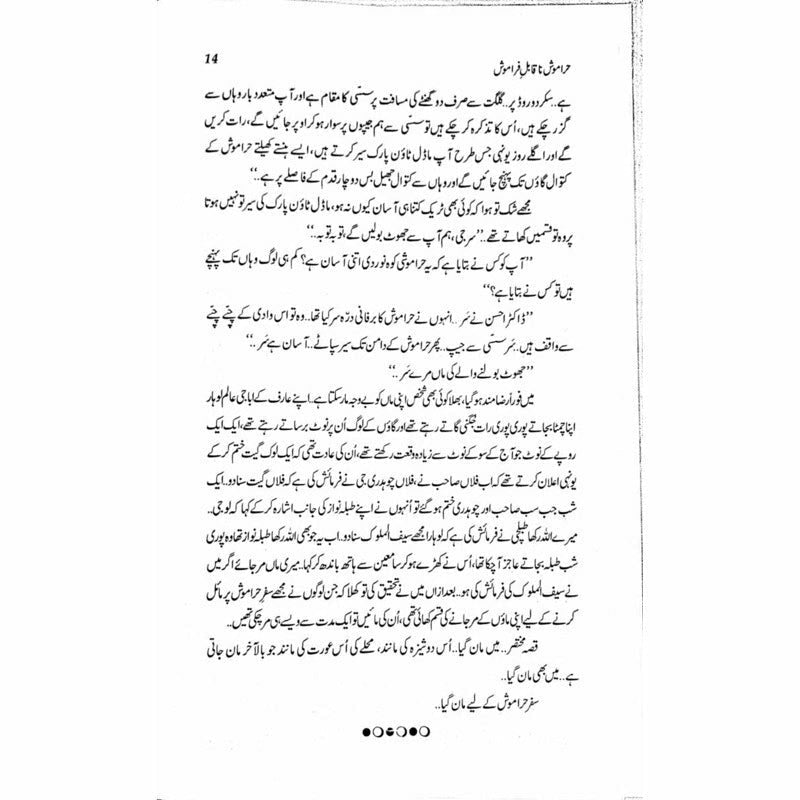 حراموش ناقابلِ فراموش
14
ہے.. سکردو روڈ پر.. گلگت سے صرف دو گھنٹے کی مسافت پر سسّی کا مقام ہے اور آپ متعدد بار وہاں سے
گزر چکے ہیں، اُس کا تذکرہ کر چکے ہیں تو سسّی سے ہم جیپوں پر سوار ہو کر اوپر جائیں گے، رات کریں
گے اور اگلے روز یونہی جس طرح آپ ماڈل ٹاؤن پارک سیر کرتے ہیں، ایسے ہنستے کھیلتے حراموش کے
کتوال گاؤں تک پہنچ جائیں گے اور وہاں سے کتوال جھیل بس دو چار قدم کے فاصلے پر ہے..‘‘
مجھے شک تو ہوا کہ کوئی بھی ٹریک کتنا ہی آسان کیوں نہ ہو، ماڈل ٹاؤن پارک کی سیر تو نہیں ہوتا
پر وہ تو قسمیں کھاتے تھے..’’سر جی، ہم آپ سے جھوٹ بولیں گے، توبہ توبہ..‘‘
’’آپ کو کس نے بتایا ہے کہ یہ حراموشی کوہ نوردی اتنی آسان ہے؟ کم ہی لوگ وہاں تک پہنچے
ہیں تو کس نے بتایا ہے؟‘‘
’’ڈاکٹر احسن نے سَر.. انہوں نے حراموش کا برفانی درّہ سر کیا تھا.. وہ تو اس وادی کے چپّے چپّے
سے واقف ہیں.. سَر سسّی سے جیپ.. پھر حراموش کے دامن تک سیر سپاٹے.. آسان ہے سَر..‘‘
’’جھوٹ بولنے والے کی ماں مرے سَر..‘‘
میں فوراً رضامند ہو گیا، بھلا کوئی بھی شخص اپنی ماں کو بے وجہ مار سکتا ہے.. اپنے عارف کے ابا جی عالم لوہار
اپنا چمٹا بجاتے پوری پوری رات جُگنی گاتے رہتے تھے اور گاؤں کے لوگ اُن پر نوٹ برساتے رہتے تھے، ایک ایک
روپے کے نوٹ جو آج کے سو کے نوٹ سے زیادہ وقعت رکھتے تھے، اُن کی عادت تھی کہ ایک لوک گیت ختم کر کے
یونہی اعلان کرتے تھے کہ اب فلاں صاحب نے، فلاں چوہدری جی نے فرمائش کی ہے کہ فلاں گیت سنا دو.. ایک
شب جب سب صاحب اور چوہدری ختم ہو گئے تو اُنہوں نے اپنے طبلہ نواز کی جانب اشارہ کر کے کہا کہ لو جی..
میرے اللہ رکھا طبلچی نے فرمائش کی ہے کہ لوہارا مجھے سیف الملوک سنا دو.. اب یہ جو بھی اللہ رکھا طبلہ نواز تھا وہ پوری
شب طبلہ بجاتے عاجز آ چکا تھا، اُس نے کھڑے ہو کر سامعین سے ہاتھ باندھ کر کہا.. میری ماں مر جائے اگر میں
نے سیف الملوک کی فرمائش کی ہو.. بعد ازاں میں نے تحقیق کی تو کھلا کہ جن لوگوں نے مجھے سفرِ حراموش پر مائل
کرنے کے لیے اپنی ماؤں کے مر جانے کی قسم کھائی تھی، اُن کی مائیں تو ایک مدت سے ویسے ہی مر چکی تھیں..
قصہ مختصر.. میں مان گیا.. اُس دوشیزہ کی مانند، محلے کی اُس عورت کی مانند جو بالآخر مان جاتی
ہے.. میں بھی مان گیا..
سفرِ حراموش کے لیے مان گیا..